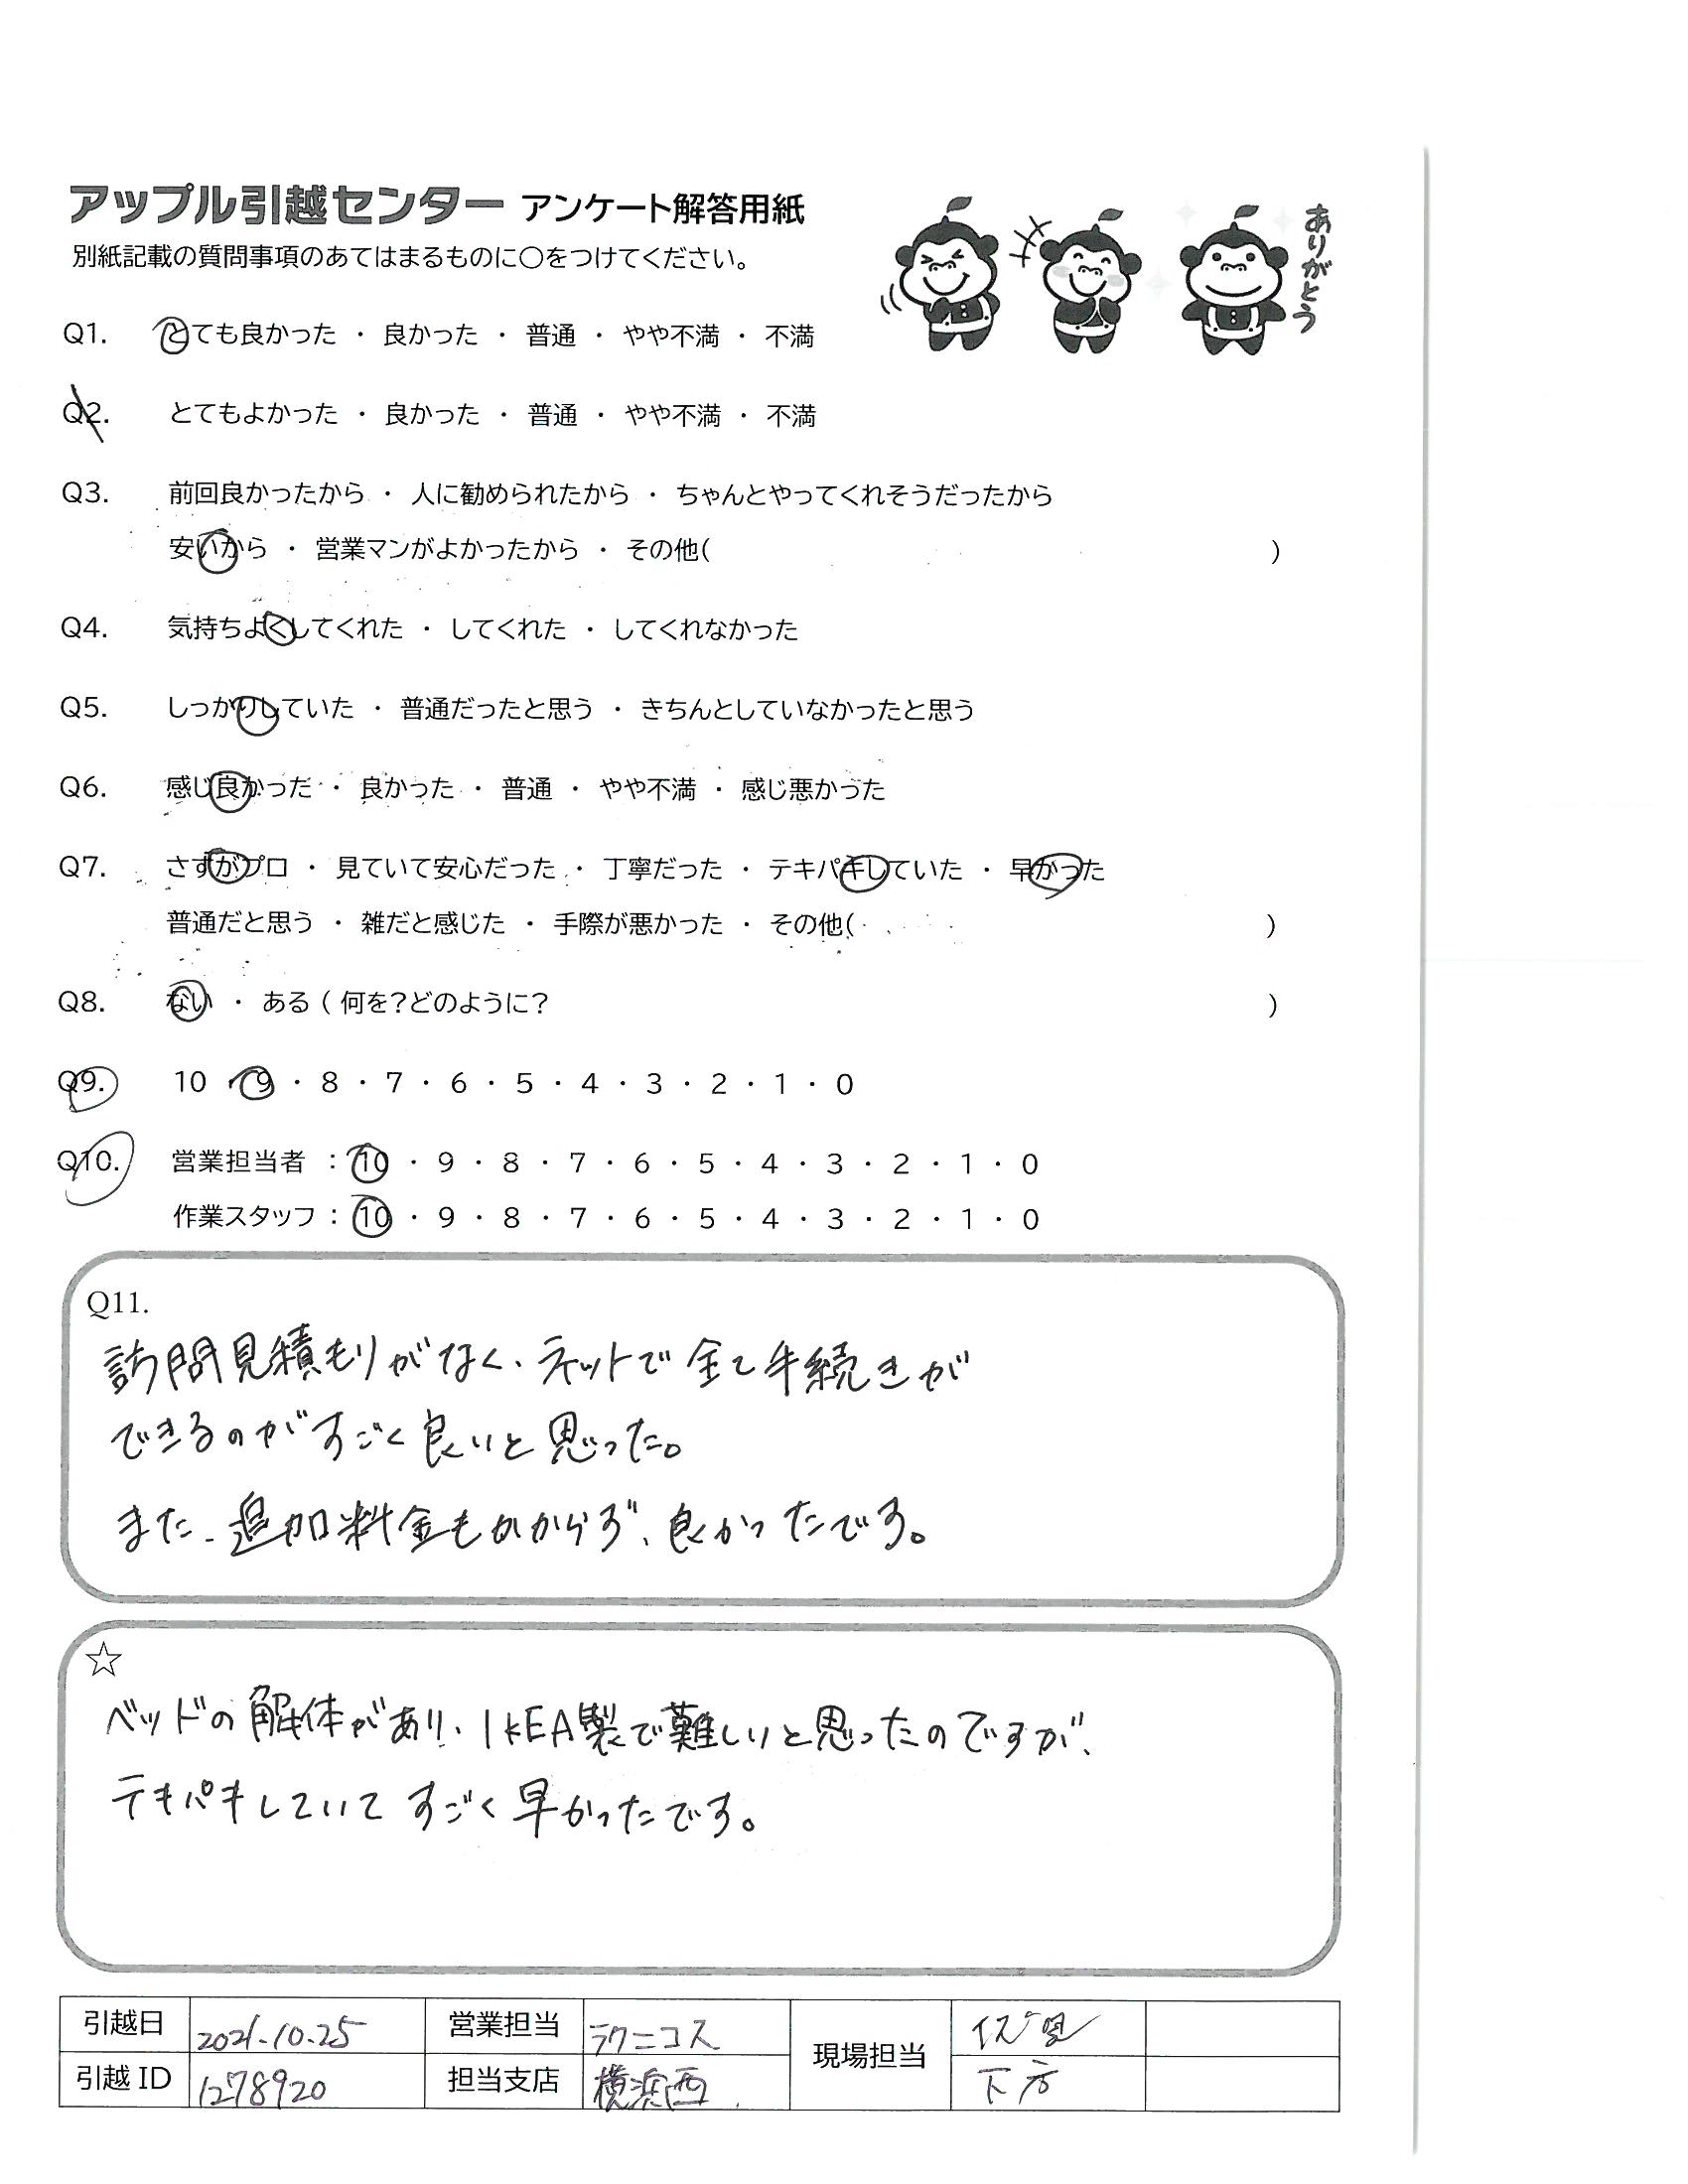 アップル引越センター アンケート解答用紙
別紙記載の質問事項のあてはまるものに〇をつけてください。
ありがとう
Q1. とても良かった ・ 良かった ・ 普通 ・ やや不満 ・ 不満
Q2. とてもよかった ・ 良かった ・ 普通 ・ やや不満 ・ 不満
Q3. 前回良かったから ・ 人に勧められたから ・ ちゃんとやってくれそうだったから
安いから ・ 営業マンがよかったから ・ その他( )
Q4. 気持ちよくしてくれた ・ してくれた ・ してくれなかった
Q5. しっかりしていた ・ 普通だったと思う ・ きちんとしていなかったと思う
Q6. 感じ良かった ・ 良かった ・ 普通 ・ やや不満 ・ 感じ悪かった
Q7. さすがプロ ・ 見ていて安心だった ・ 丁寧だった ・ テキパキしていた ・ 早かった
普通だと思う ・ 雑だと感じた ・ 手際が悪かった ・ その他( )
Q8. ない ・ ある ( 何を?どのように? )
Q9. 10 ・ 9 ・ 8 ・ 7 ・ 6 ・ 5 ・ 4 ・ 3 ・ 2 ・ 1 ・ 0
Q10. 営業担当者 : 10 ・ 9 ・ 8 ・ 7 ・ 6 ・ 5 ・ 4 ・ 3 ・ 2 ・ 1 ・ 0
作業スタッフ : 10 ・ 9 ・ 8 ・ 7 ・ 6 ・ 5 ・ 4 ・ 3 ・ 2 ・ 1 ・ 0
Q11.
訪問見積もりがなく、ネットで全て手続きが
できるのがすごく良いと思った。
また、追加料金もかからず、良かったです。
☆
ベッドの解体があり、IKEA製で難しいと思ったのですが、
テキパキしていてすごく早かったです。
引越日 2021.10.25 営業担当 ラクニコス 現場担当
引越ID 1278920 担当支店 横浜西 下方